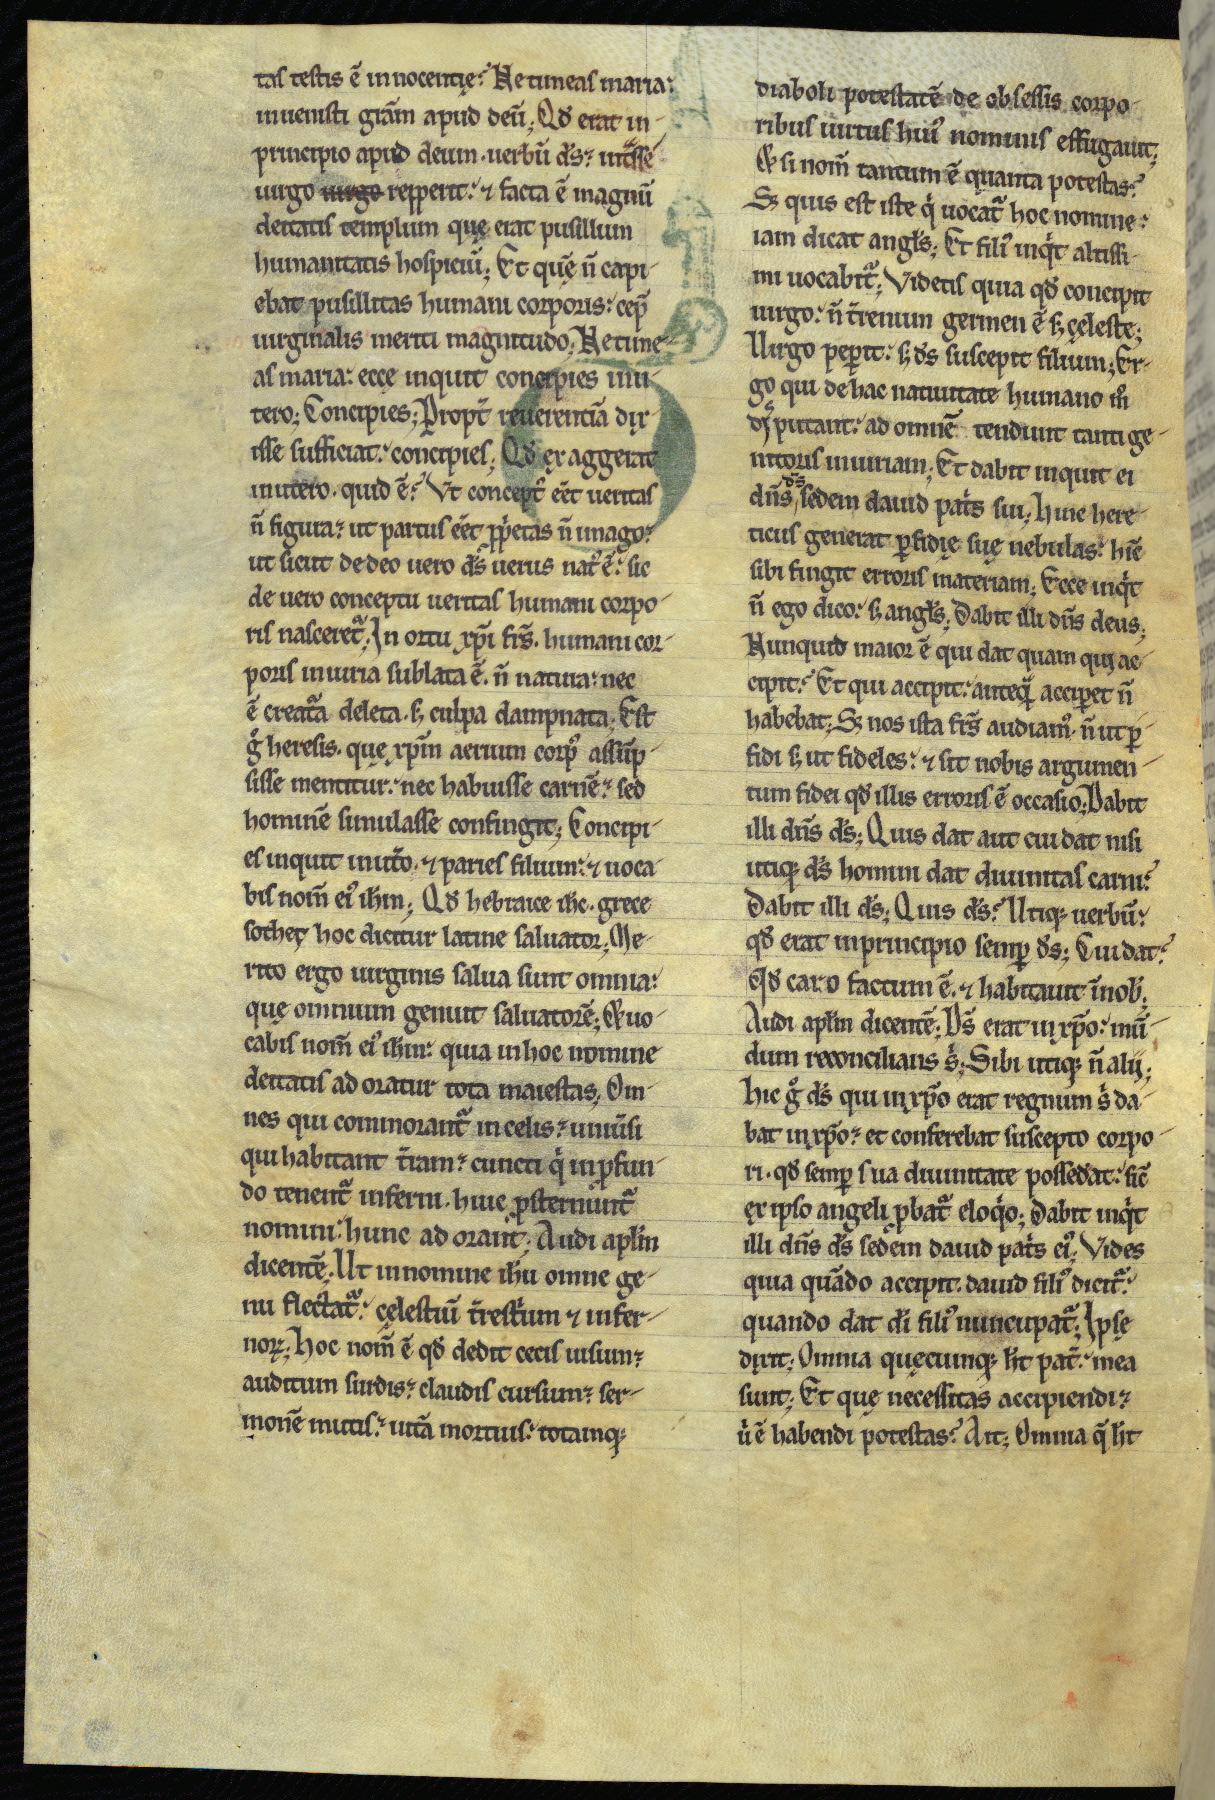 tas testis ē innocentię? Ne timeas maria:
inuenisti grām apud deū; Qđ erat in-
principio apud deum. uerbū d̄s? intᷓsse
uirgo uirgo repperit: ⁊ facta ē magnū
deitatis templum quę erat pusillum
humanitatis hospiciū; Et quę n̄ capi-
ebat pusillitas humani corporis: cep̄
uirginalis meriti magnitudo; Ne time-
as maria: ecce inquit concipies in u-
tero; Concipies; Propt̄ reuerentiā dix-
isse sufficiat: concipies; Qđ exaggerat
in utero. quid ē? Vt concept᷒ eēt ueritas
n̄ figura? ut partus eēt ꝓprietas n̄ imago?
ut sicut de deo uero d̄s uerus nat᷒ ē: sic
de uero conceptu ueritas humani corpo-
ris nasceret᷑; In ortu xp̄i frs̄. humani cor-
poris iniuria sublata ē. n̄ natura: nec
ē creat᷑a deleta. s; culpa dampnata; Est
g̊ heresis. quę xp̄m aerium corp᷒ assūp-
sisse mentitur: nec habuisse carnē? sed
hominē simulasse confingit; Concipi-
es inquit in utō. ⁊ paries filium: ⁊ uoca-
bis nom̄ ei᷒ ih̄m; Qđ hebraice ih̄c. grece
sother hoc dicitur latine saluator; Me-
rito ergo uirginis salua sunt omnia:
quę omnium genuit saluatorē; & uo-
cabis nom̄ ei᷒ ih̄m: quia in hoc nomine
deitatis ad oratur tota maiestas; Om-
nes qui commorant᷑ in celis? uniūsi
qui habitant t̄ram? cuncti q̇ in ꝓfun-
do tenent᷑ inferni. huic ꝓsternunt᷑
nomini: hunc ad orant; Audi apl̄m
dicentē; Ut in nomine ih̄u omne ge-
nu flectat᷑: cęlestiū t̄restium ⁊ infer-
noꝝ; Hoc nom̄ ē qđ dedit cecis uisum?
auditum surdis? claudis cursum? ser-
monē mutis? uitā mortuis: totamq;
diaboli potestatē de obsessis corpo-
ribus uirtus hui᷒ nominis effugauit;
& si nom̄ tantum ē quanta potestas?
S; quis est iste q̇ uocat᷑ hoc nomine:
iam dicat angl̄s; Et fili᷒ inqt̄ altissi-
mi uocabit᷑; Videtis quia qđ concipit
uirgo: n̄ t̄renum germen ē s; cęleste;
Uirgo peperit: s; d̄s suscepit filium; Er-
go qui de hac natiuitate humano m̊
disputant: ad omnē tendunt tanti ge-
nitoris iniuriam; Et dabit inquit ei
dn̄s d̄s sedem dauid pat̄s sui; Hinc here-
ticus generat ꝑfidię suę nebulas: hinc
sibi fingit erroris materiam; Ecce inqt̄
n̄ ego dico: s; angl̄s; Dabit illi dn̄s deus;
Nunquid maior ē qui dat quam qui ac-
cipit? Et qui accipit: anteq̄ acciperet n̄
habebat; S; nos ista frs̄ audiam᷒. n̄ ut ꝑ-
fidi s; ut fideles: ⁊ sit nobis argumen-
tum fidei qđ illis erroris ē occasio; Dabit
illi dn̄s d̄s; Quis dat aut cui dat nisi
utiq; d̄s homini dat diuinitas carni?
Dabit illi d̄s; Quis d̄s? Utiq; uerbū:
qđ erat in principio semꝑ d̄s; Cui dat?
Qđ caro factum ē. ⁊ habitauit in nob̄.
Audi apl̄m dicentē; D̄s erat in xp̄o: mū-
dum reconcilians s̄; Sibi utiq; n̄ alij;
hic g̊ d̄s qui in xp̄o erat regnum s̄ da-
bat in xp̄o? et conferebat suscepto corpo-
ri. qđ semꝑ sua diuinitate possederat: sic̄
ex ipso angeli ꝓbat᷑ eloq̇o; Dabit inqt̄
illi dn̄s d̄s sedem dauid pat̄s ei᷒; Vides
quia quādo accipit. dauid fili᷒ dicit᷑:
quando dat dī fili᷒ nuncupat᷑; Ipse
dixit; Omnia quęcunq; h̄t pat̄: mea
sunt; Et quę necessitas accipiendi?
u̇ ē habendi potestas? Ait; Omnia q̄ h̄t